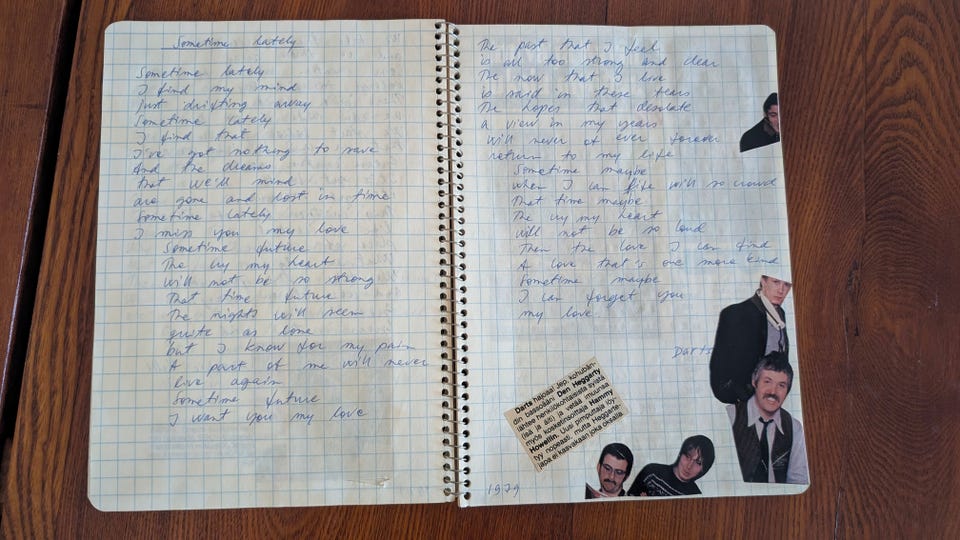 Sometime Lately
Sometime lately
I find my mind
Just drifting away
Sometime lately
I find that
I've got nothing to save
And the dreams
that we'll mind
are gone and lost in time
Sometime lately
I miss you my love
Sometime future
The cry my heart
will not be so strong
That time future
The nights will seem
quite as lone
but I know for my pain
A part of me will never
live again
Sometime future
I want you my love
The past that I feel
is all too strong and clear
The now that I live
is said in these tears
The hopes that desolate
a view in my years
will never of ever forever
return to my life
Sometime maybe
when I can will so
That time maybe
The cry my heart
will not be so loud
Then the love I can find
A love that is one more kind
Sometime maybe
I can forget you
my love
Darts
Darts hajoaa! Jep, kohubän-
din bassoääni Den Heggarty
lähtee henkilökohtaisista syistä
(isä ja äiti) ja vetää imuunsa
myös kosketinsoittaja Hammy
Howellin. Uusi pimputtaja löy-
tyi nopeasti, mutta Heggarte-
japa ei kasvakaan joka oksalla.
1979